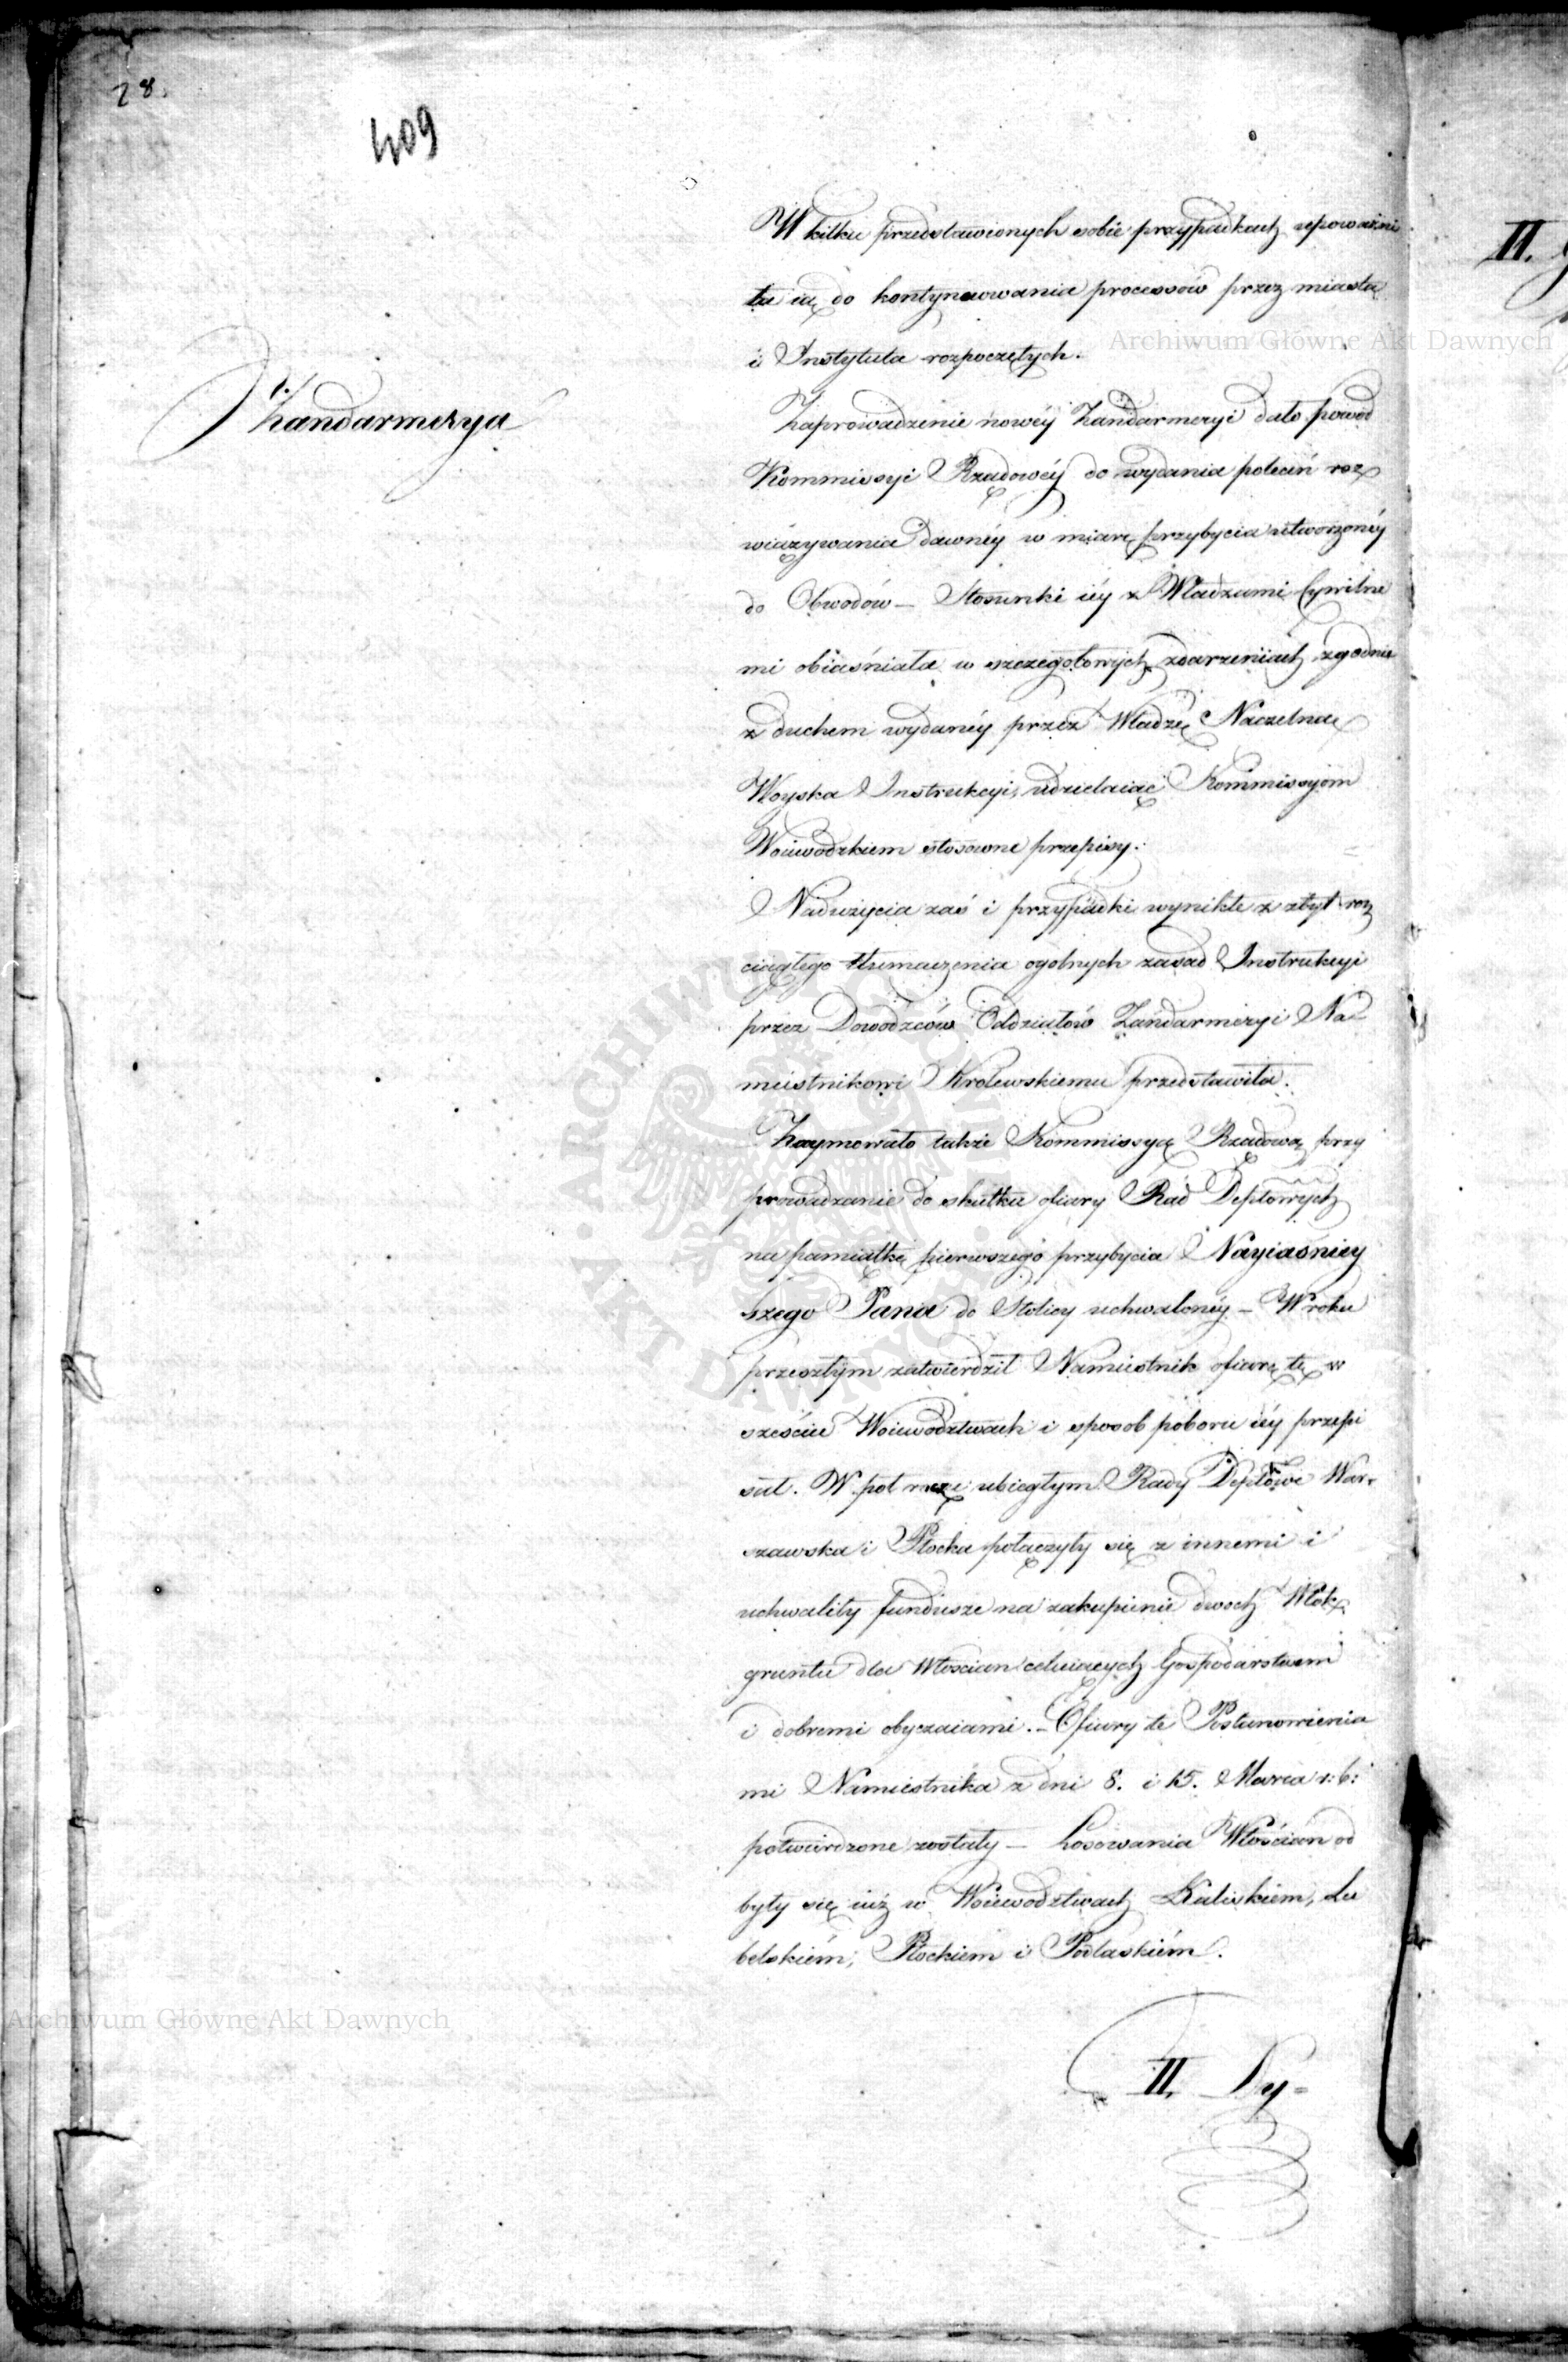 28.
409
W kilku przedstawionych sobie przypadkach upoważni
ła ią do kontynuowania processów przez miasta
i Instytuta rozpoczętych.
Żandarmerya
Zaprowadzenie nowéy Żandarmeryi dało powód
Kommissyi Rządowéy do wydania poleceń roz
wiązywania dawnéy w miarę przybycia utworzonéy
do Obwodów – Stosunki iéy z Władzami Cywilne
mi obiaśniała w szczegołowych zdarzeniach zgodnie
z duchem wydanéy przez Władzę Naczelną
Woyska Instrukcyi, udzielaiąc Kommissyom
Woiewodzkiem stosowne przepisy.
Nadużycia zaś i przypadki wynikłe z zbyt roz
ciągłego tłumaczenia ogolnych zasad Instrukcyi
przez Dowódzców Oddziałów Żandarmeryi Na
miestnikowi Krolewskiemu przedstawiła.
Zaymowało także Kommissyą Rządową przy
prowadzanie do skutku ofiary Rad Deptowych
na pamiątkę pierwszego przybycia Nayiaśniey
szego Pana do Stolicy uchwalonéy – W roku
przeszłym zatwierdził Namiestnik ofiarę tę w
sześciu Woiewodztwach i sposob poboru iéy przepi
sał. W poł roczu ubiegłym Rady Deptowe War-
szawska i Płocka połączyły się z innemi i
uchwaliły fundusze na zakupienie dwoch Włok
gruntu dla Włoscian celuiących Gospodarstwem
i dobremi obyczaiami. – Ofiary te Postanowienia
mi Namiestnika z dni 8. i 15. Marca r: b:
potwierdzone zostały – Losowania Włościan od
były się iuż w Woiewodztwach Kaliskiem, Lu
belskiém, Płockiem i Podlaskiém.
II. Dy=
II.
Archiwum Główne Akt Dawnych
Archiwum Główne Akt Dawnych
ARCHIWUM GŁÓWNE AKT DAWNYCH